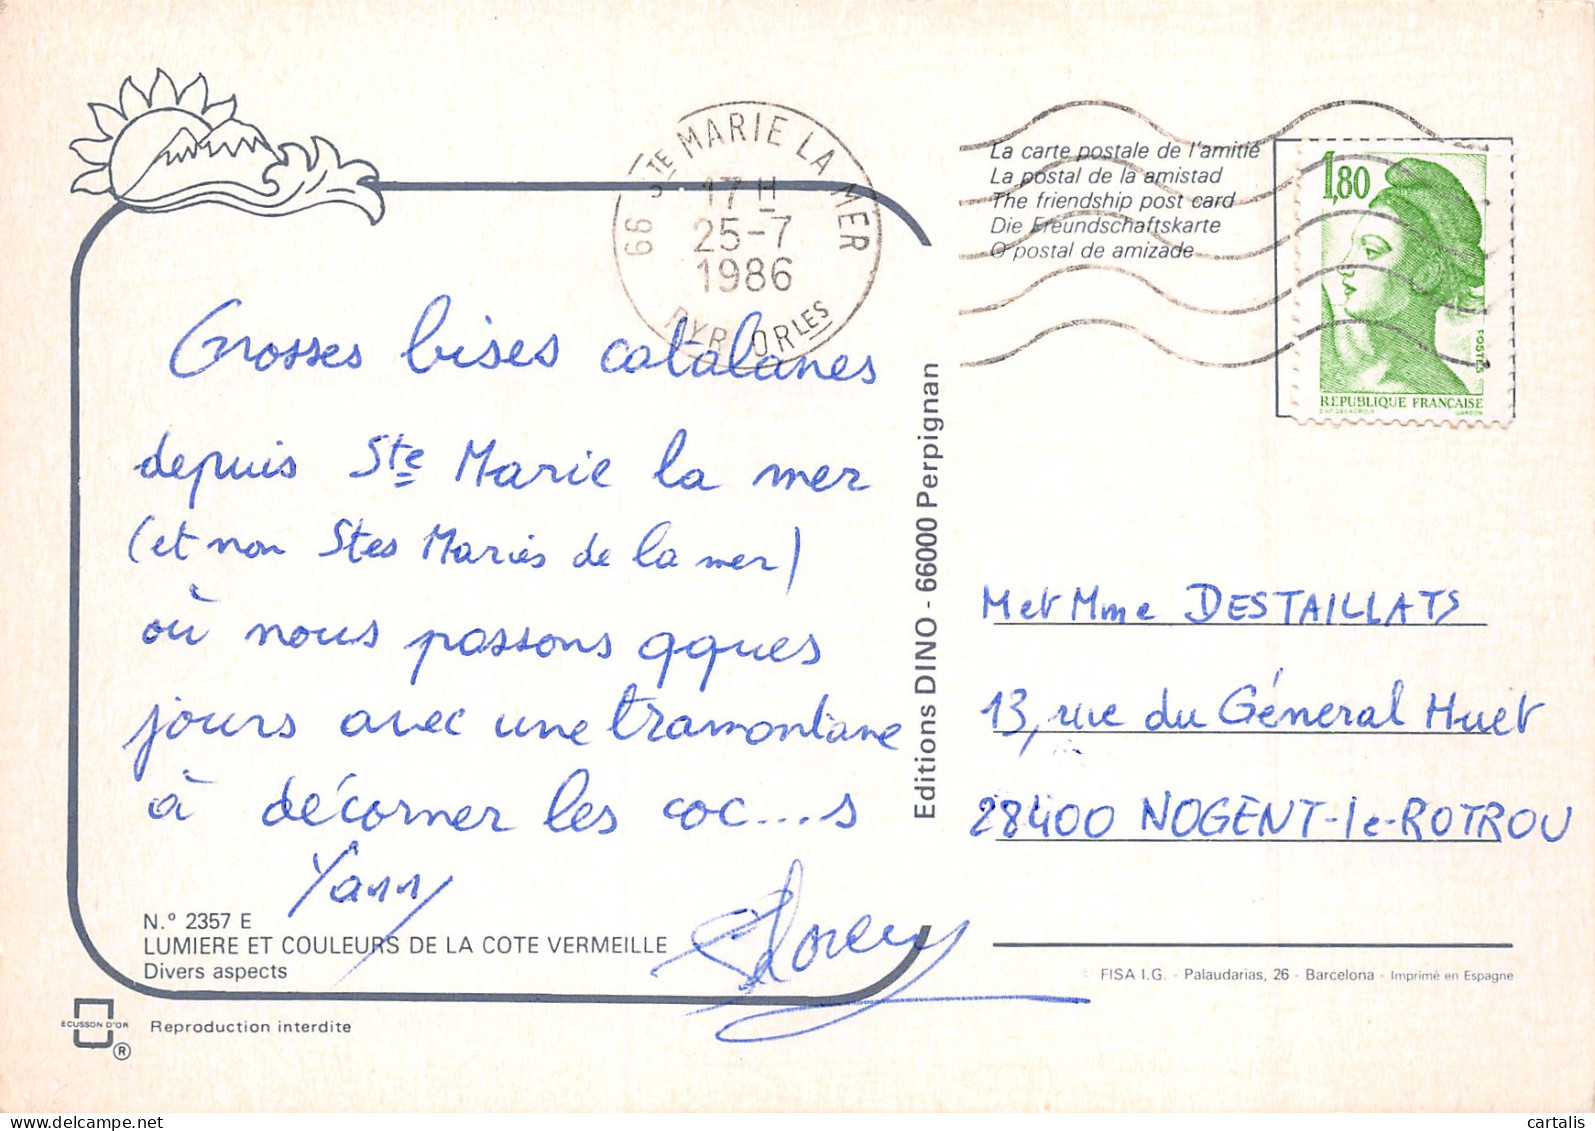 66 STE MARIE LA MER
17 H
25-7
1986
PYR ORLES
La carte postale de l'amitié
La postal de la amistad
The friendship post card
Die Freundschaftskarte
O postal de amizade
1,80
POSTES
REPUBLIQUE FRANÇAISE
D'AP. DELACROIX GANDON
Grosses bises catalanes
depuis Ste Marie la mer
(et non Stes Maries de la mer)
où nous passons qques
jours avec une tramontane
à décorner les coc....s
Yann
N.° 2357 E
LUMIERE ET COULEURS DE LA COTE VERMEILLE
Divers aspects
ECUSSON D'OR
®
Reproduction interdite
Editions DINO - 66000 Perpignan
M et Mme DESTAILLATS
13, rue du Général Huet
28400 NOGENT-le-ROTROU
FISA I.G. - Palaudarias, 26 - Barcelona - Imprimé en Espagne
cartalis